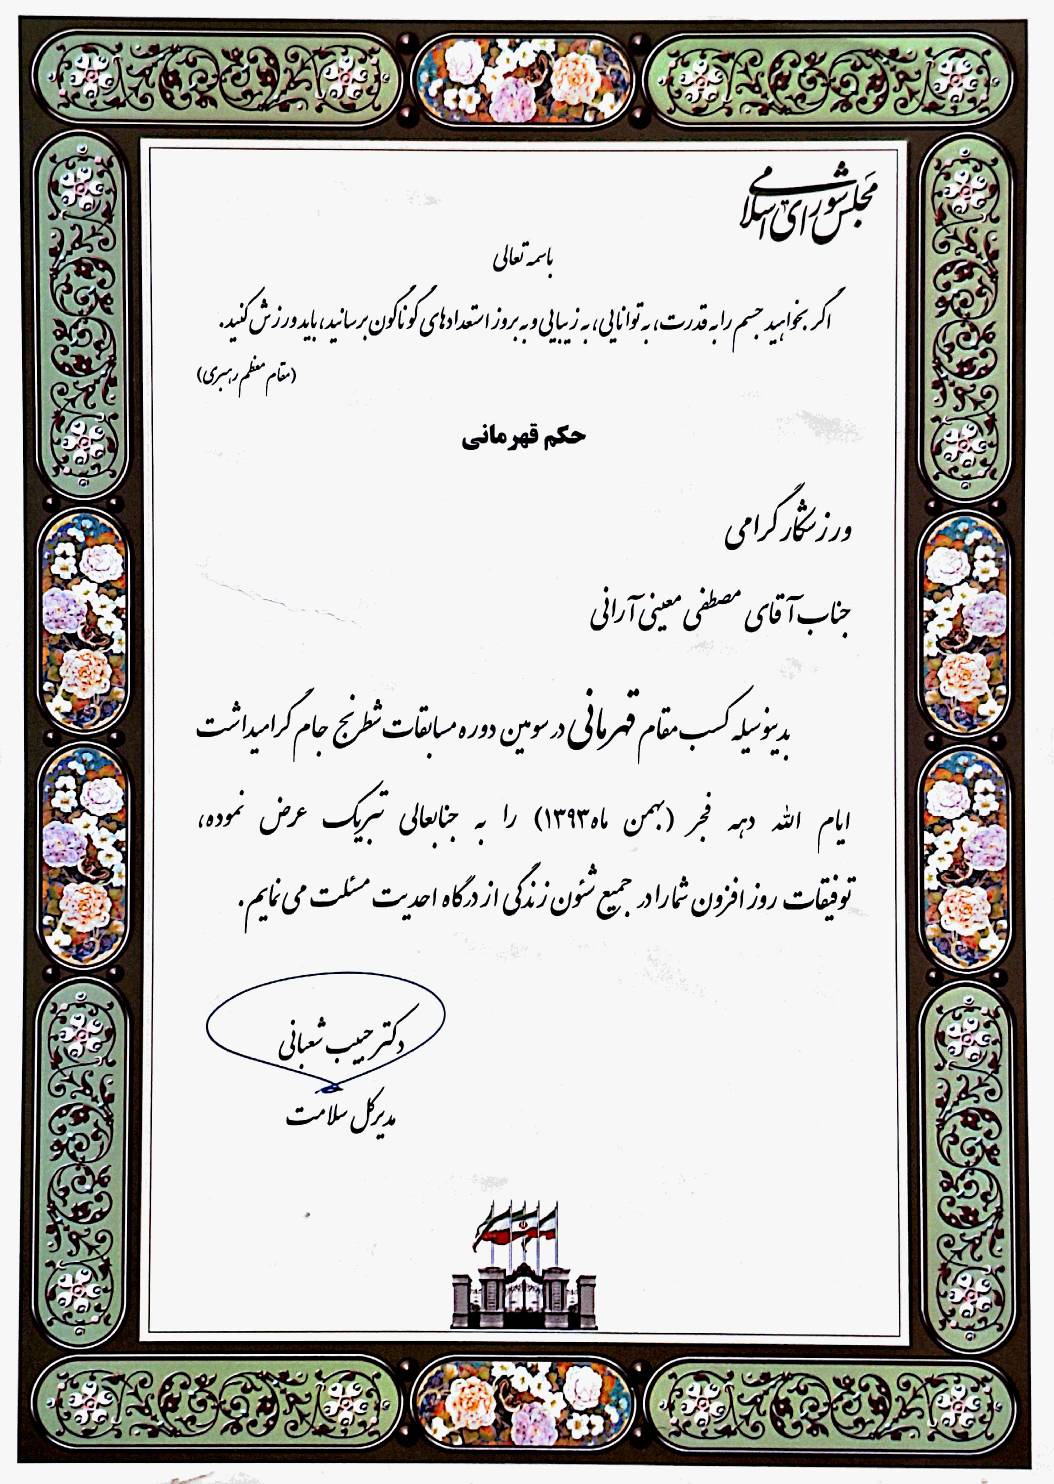 مجلس شورای اسلامی
باسمه تعالی
اگر بخواهید جسم را به قدرت، به توانایی، به زیبایی و به بروز استعدادهای گوناگون برسانید، باید ورزش کنید.
(مقام معظم رهبری)
حکم قهرمانی
ورزشکار گرامی
جناب آقای مصطفی معینی آرانی
بدینوسیله کسب مقام قهرمانی در سومین دوره مسابقات شطرنج جام گرامیداشت
ایام الله دهه فجر (بهمن ماه ۱۳۹۳) را به جنابعالی تبریک عرض نموده،
توفیقات روز افزون شما را در جمیع شئون زندگی از درگاه احدیت مسئلت می نمایم.
دکتر حبیب شعبانی
مدیرکل سلامت